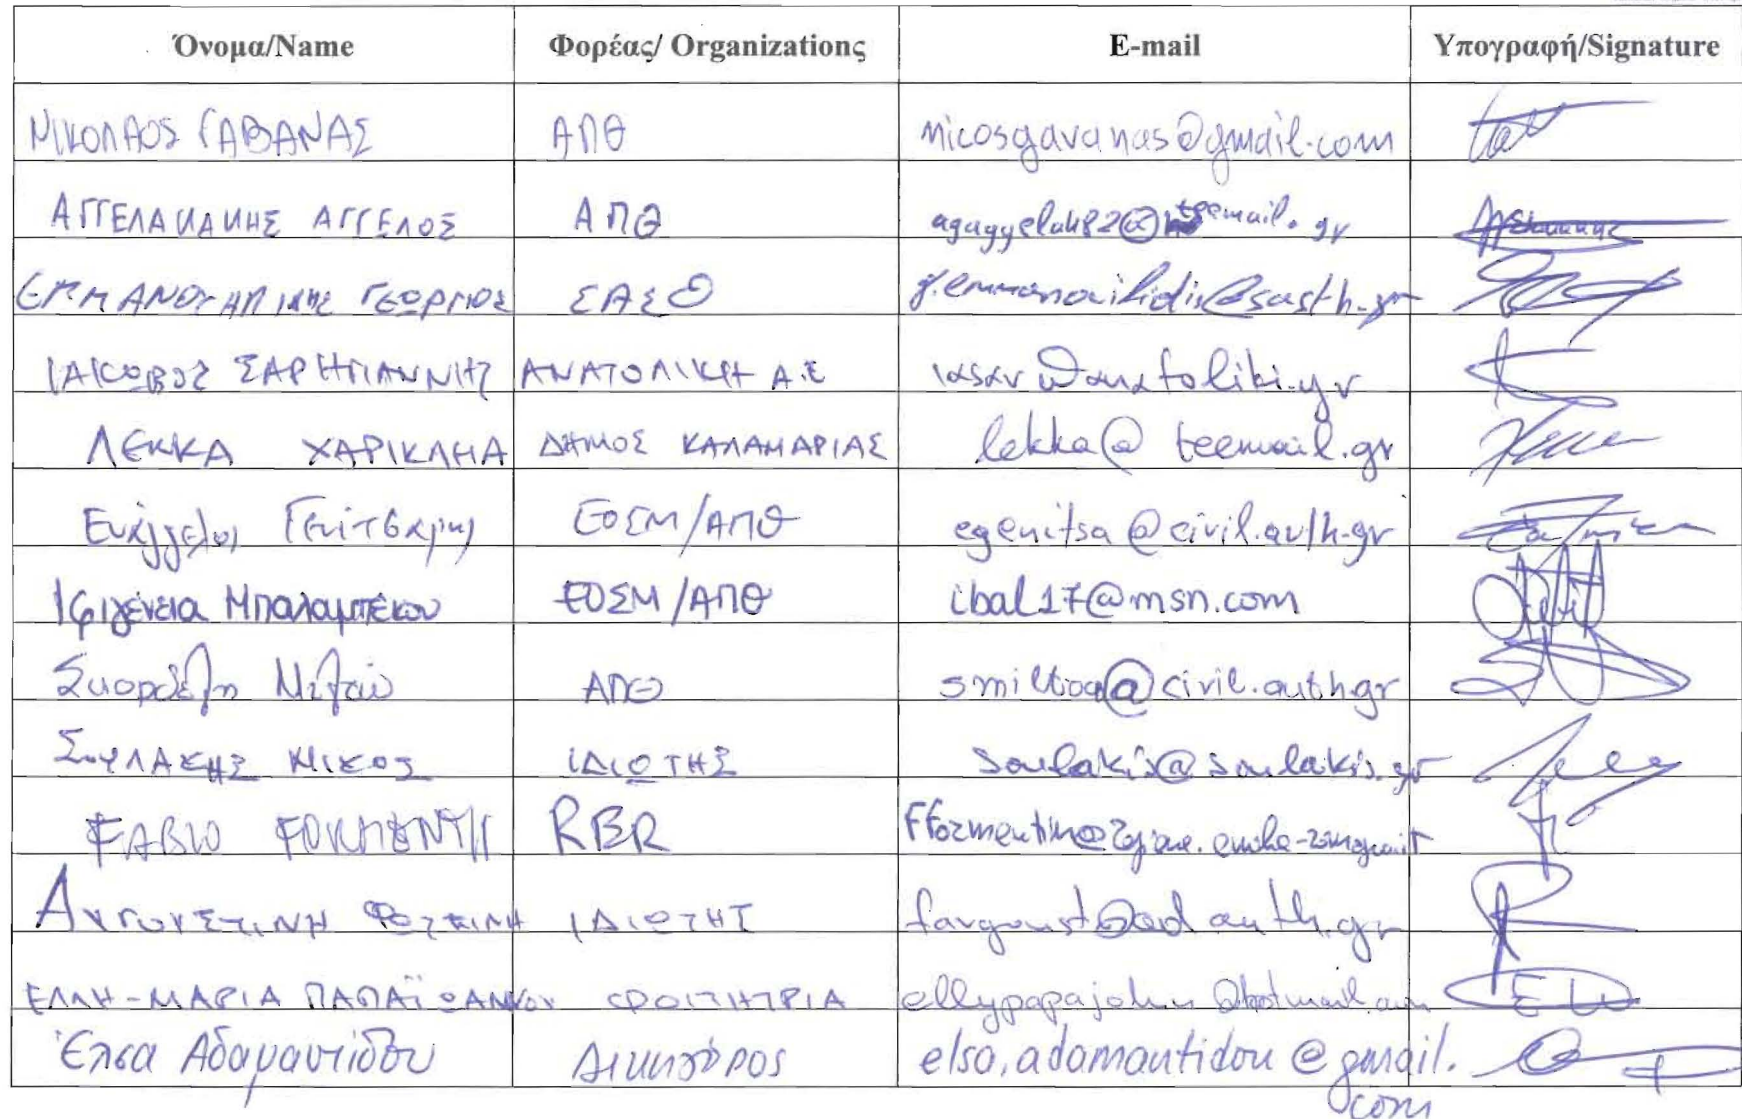 Όνομα/Name Φορέας/ Organizations E-mail Υπογραφή/Signature
ΝΙΚΟΛΑΟΣ ΓΑΒΑΝΑΣ ΑΠΘ nicosgavanas@gmail.com
ΑΓΓΕΛΑΚΑΚΗΣ ΑΓΓΕΛΟΣ ΑΠΘ
ΕΜΜΑΝΟΥΗΛΙΔΗΣ ΓΕΩΡΓΙΟΣ ΣΑΣΘ g.emmanouilidis@sasth.gr
ΙΑΚΩΒΟΣ ΣΑΡΗΓΙΑΝΝΗΣ ΑΝΑΤΟΛΙΚΗ Α.Ε
ΛΕΚΚΑ ΧΑΡΙΚΛΗΑ ΔΗΜΟΣ ΚΑΛΑΜΑΡΙΑΣ lekka@teemail.gr
Ευάγγελος Γενίτσαρης ΕΟΣΜ/ΑΠΘ egenitsa@civil.auth.gr
Ιφιγένεια Μπαλαμπέκου ΕΟΣΜ/ΑΠΘ ibal17@msn.com
ΑΠΘ smiltoa@civil.auth.gr
ΣΟΥΛΑΚΗΣ ΝΙΚΟΣ ΙΔΙΩΤΗΣ soulakis@soulakis.gr
FABIO FORMENTIN RBR
ΑΥΓΟΥΣΤΙΝΗ ΦΩΤΕΙΝΗ ΙΔΙΩΤΗΣ favgoust@ad.auth.gr
ΕΛΛΗ-ΜΑΡΙΑ ΠΑΠΑΪΩΑΝΝΟΥ ΦΟΙΤΗΤΡΙΑ ellypapajohn@hotmail.com
Έλσα Αδαμαντίδου ΔΙΚΗΓΟΡΟΣ elsa.adamantidou@gmail.
com